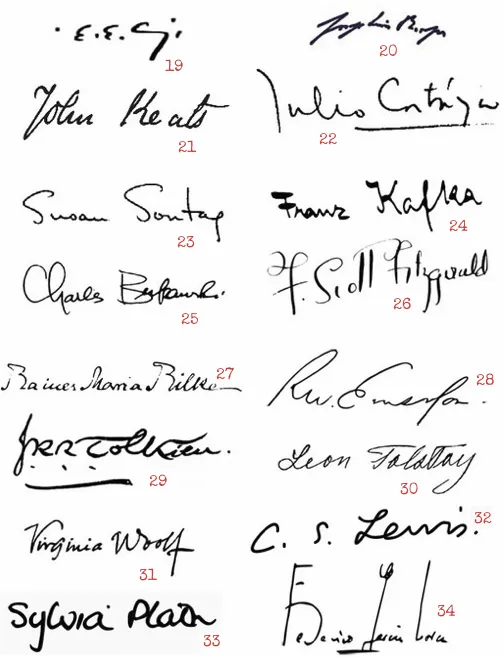 E. E. C.
19
Jorge Luis Borges
20
John Keats
21
Julio Cortázar
22
Susan Sontag
23
Franz Kafka
24
Charles Bukowski.
25
F. Scott Fitzgerald
26
Rainer Maria Rilke
27
R.W. Emerson.
28
J.R.R. Tolkien.
29
Leon Tolstoy
30
Virginia Woolf
31
C. S. Lewis.
32
Sylvia Plath
33
Federico García Lorca
34